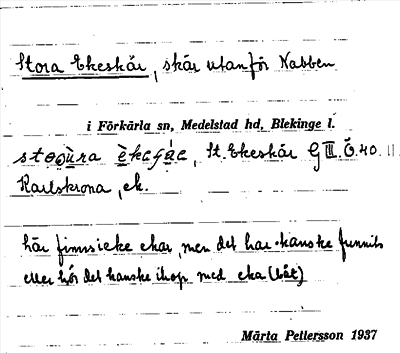 Stora Ekeskär, skär utanför Nabben
i Förkärla sn, Medelstad hd, Blekinge l.
St. Ekeskär G III. Ö. 40.
Karlskrona, ek.
här finns icke ekar, men det har kanske funnits
eller hör det kanske ihop med eka (båt)
Märta Pettersson 1937